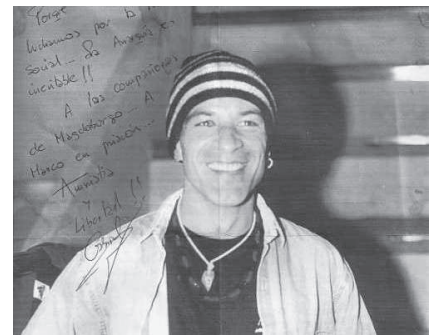 luchamos por la
social... La Anarquía es
inevitable!!
A los compañeros
de Magdeburgo... A
Marco en prisión...
Amnistía
y
Libertad!!